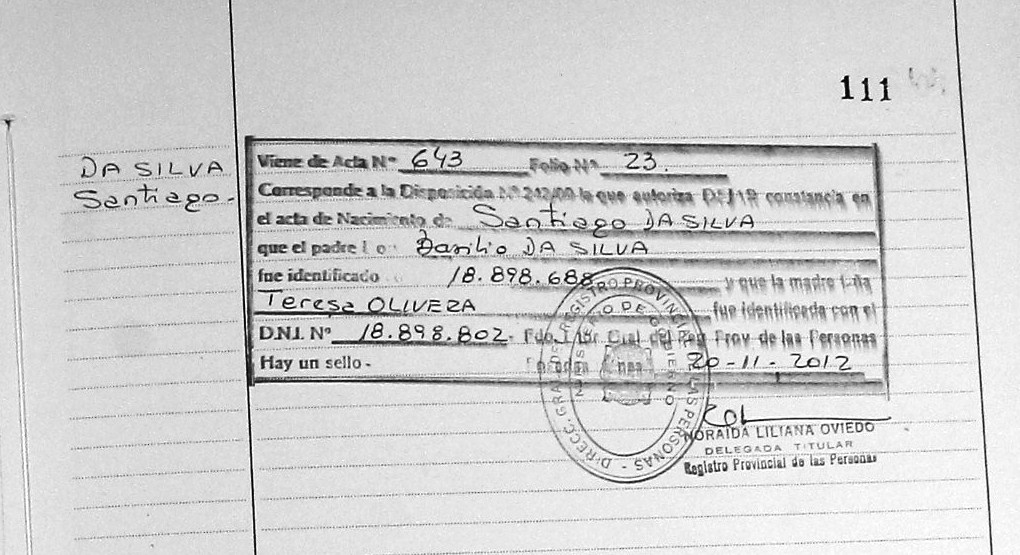 111
DA SILVA
Santiago.-
Viene de Acta Nº 643 Folio Nº 23.
Corresponde a la Disposición Nº 242/00 la que autoriza DEJAR constancia en
el acta de Nacimiento de Santiago DA SILVA
que el padre Basilio DA SILVA
fue identificado 18.898.688 y que la madre
Teresa OLIVERA fue identificada con el
D.N.I. Nº 18.898.802.- Fdo. Dir. Gral. del Reg. Prov. de las Personas
Hay un sello.- 20-11-2012
DIRECC. GRAL. DE REGISTRO PROVINCIAL DE LAS PERSONAS
MINISTERIO DE GOBIERNO
NORAIDA LILIANA OVIEDO
DELEGADA TITULAR
Registro Provincial de las Personas